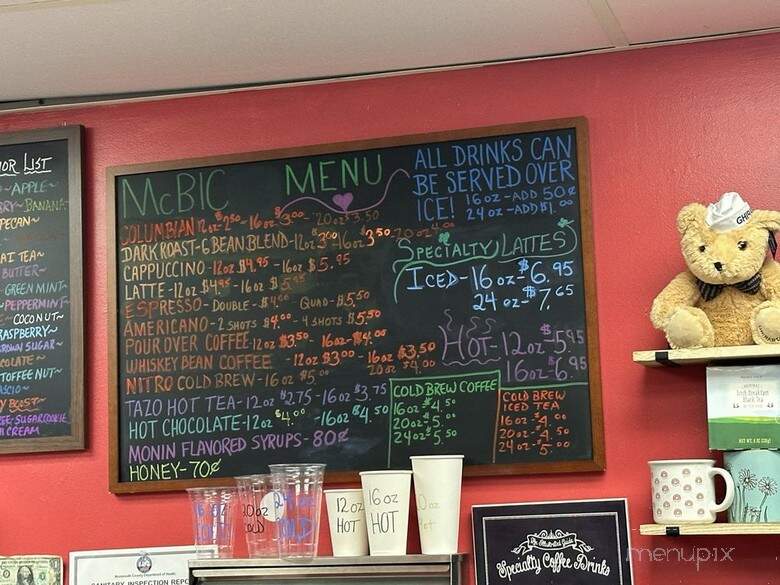 OR LIST
~APPLE~
RY~BANANA
PECAN~
AI TEA~
BUTTER~
GREEN MINT~
PEPPERMINT~
COCONUT~
RASPBERRY~
BROWN SUGAR~
COLATE~
TOFFEE NUT~
Y BEAST~
SUGAR COOKIE
CREAM
McBIC
MENU
ALL DRINKS CAN
BE SERVED OVER
ICE! 16 oz-ADD 50¢
24 oz-ADD $1.00
COLUMBIAN 12oz-2.50-16oz-$3.00 20oz $3.50
DARK ROAST-6 BEAN BLEND-12oz 3.00 16oz 3.50 20oz 4.00
CAPPUCCINO-12oz $4.95-16oz $5.95
LATTE-12oz $4.95-16oz $5.95
ESPRESSO-DOUBLE-$4.00 QUAD-$5.50
AMERICANO-2 SHOTS $4.00-4 SHOTS $5.50
POUR OVER COFFEE 12oz $3.50-16oz-$4.00
WHISKEY BEAN COFFEE -12oz $3.00-16oz $3.50
20oz $4.00
NITRO COLD BREW-16 oz $5.00
TAZO HOT TEA-12oz $2.75-16oz $3.75
HOT CHOCOLATE-12oz $4.00-16oz $4.50
MONIN FLAVORED SYRUPS-80¢
HONEY-70¢
SPECIALTY LATTES
ICED-16 oz-$6.95
24 oz-$7.65
HOT-12oz-$5.95
16oz-$6.95
COLD BREW COFFEE
16oz-$4.50
20oz-$5.00
24oz-$5.50
COLD BREW
ICED TEA
16oz-$4.00
20oz-$4.50
24oz-$5.00
12oz
HOT
16oz
HOT
SANITARY INSPECTION REPO
An Illustrated Guide
Specialty Coffee Drinks
Irish Breakfast
Black Tea
menupix